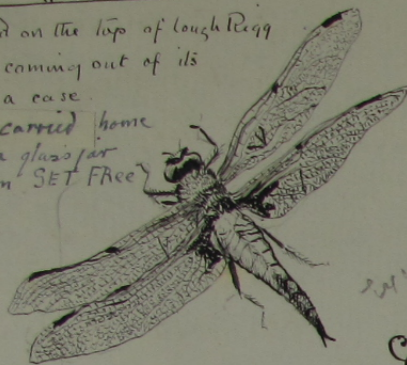 on the top of Lough Rigg
coming out of its
a case.
carried home
a glass jar
SET FREE